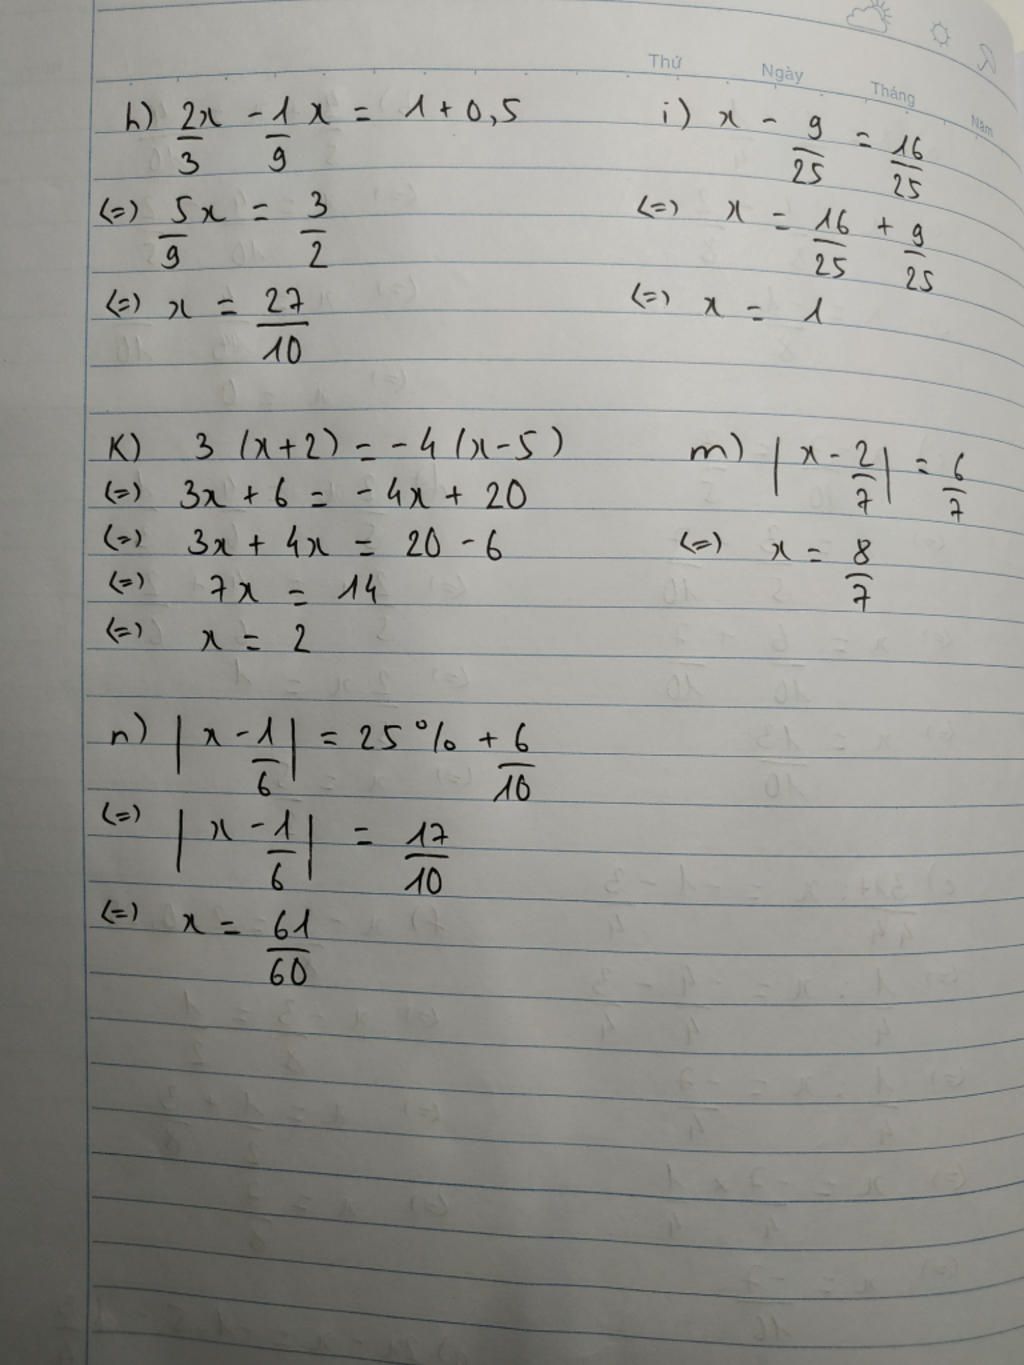 Thứ Ngày Tháng Năm
h) 2/3 x - 1/9 x = 1 + 0,5
(=) 5/9 x = 3/2
(=) x = 27/10
i) x - 9/25 = 16/25
(=) x = 16/25 + 9/25
(=) x = 1
K) 3 (x+2) = -4 (x-5)
(=) 3x + 6 = -4x + 20
(=) 3x + 4x = 20 - 6
(=) 7x = 14
(=) x = 2
m) |x - 2/7| = 6/7
(=) x = 8/7
n) |x - 1/6| = 25% + 6/10
(=) |x - 1/6| = 17/10
(=) x = 61/60